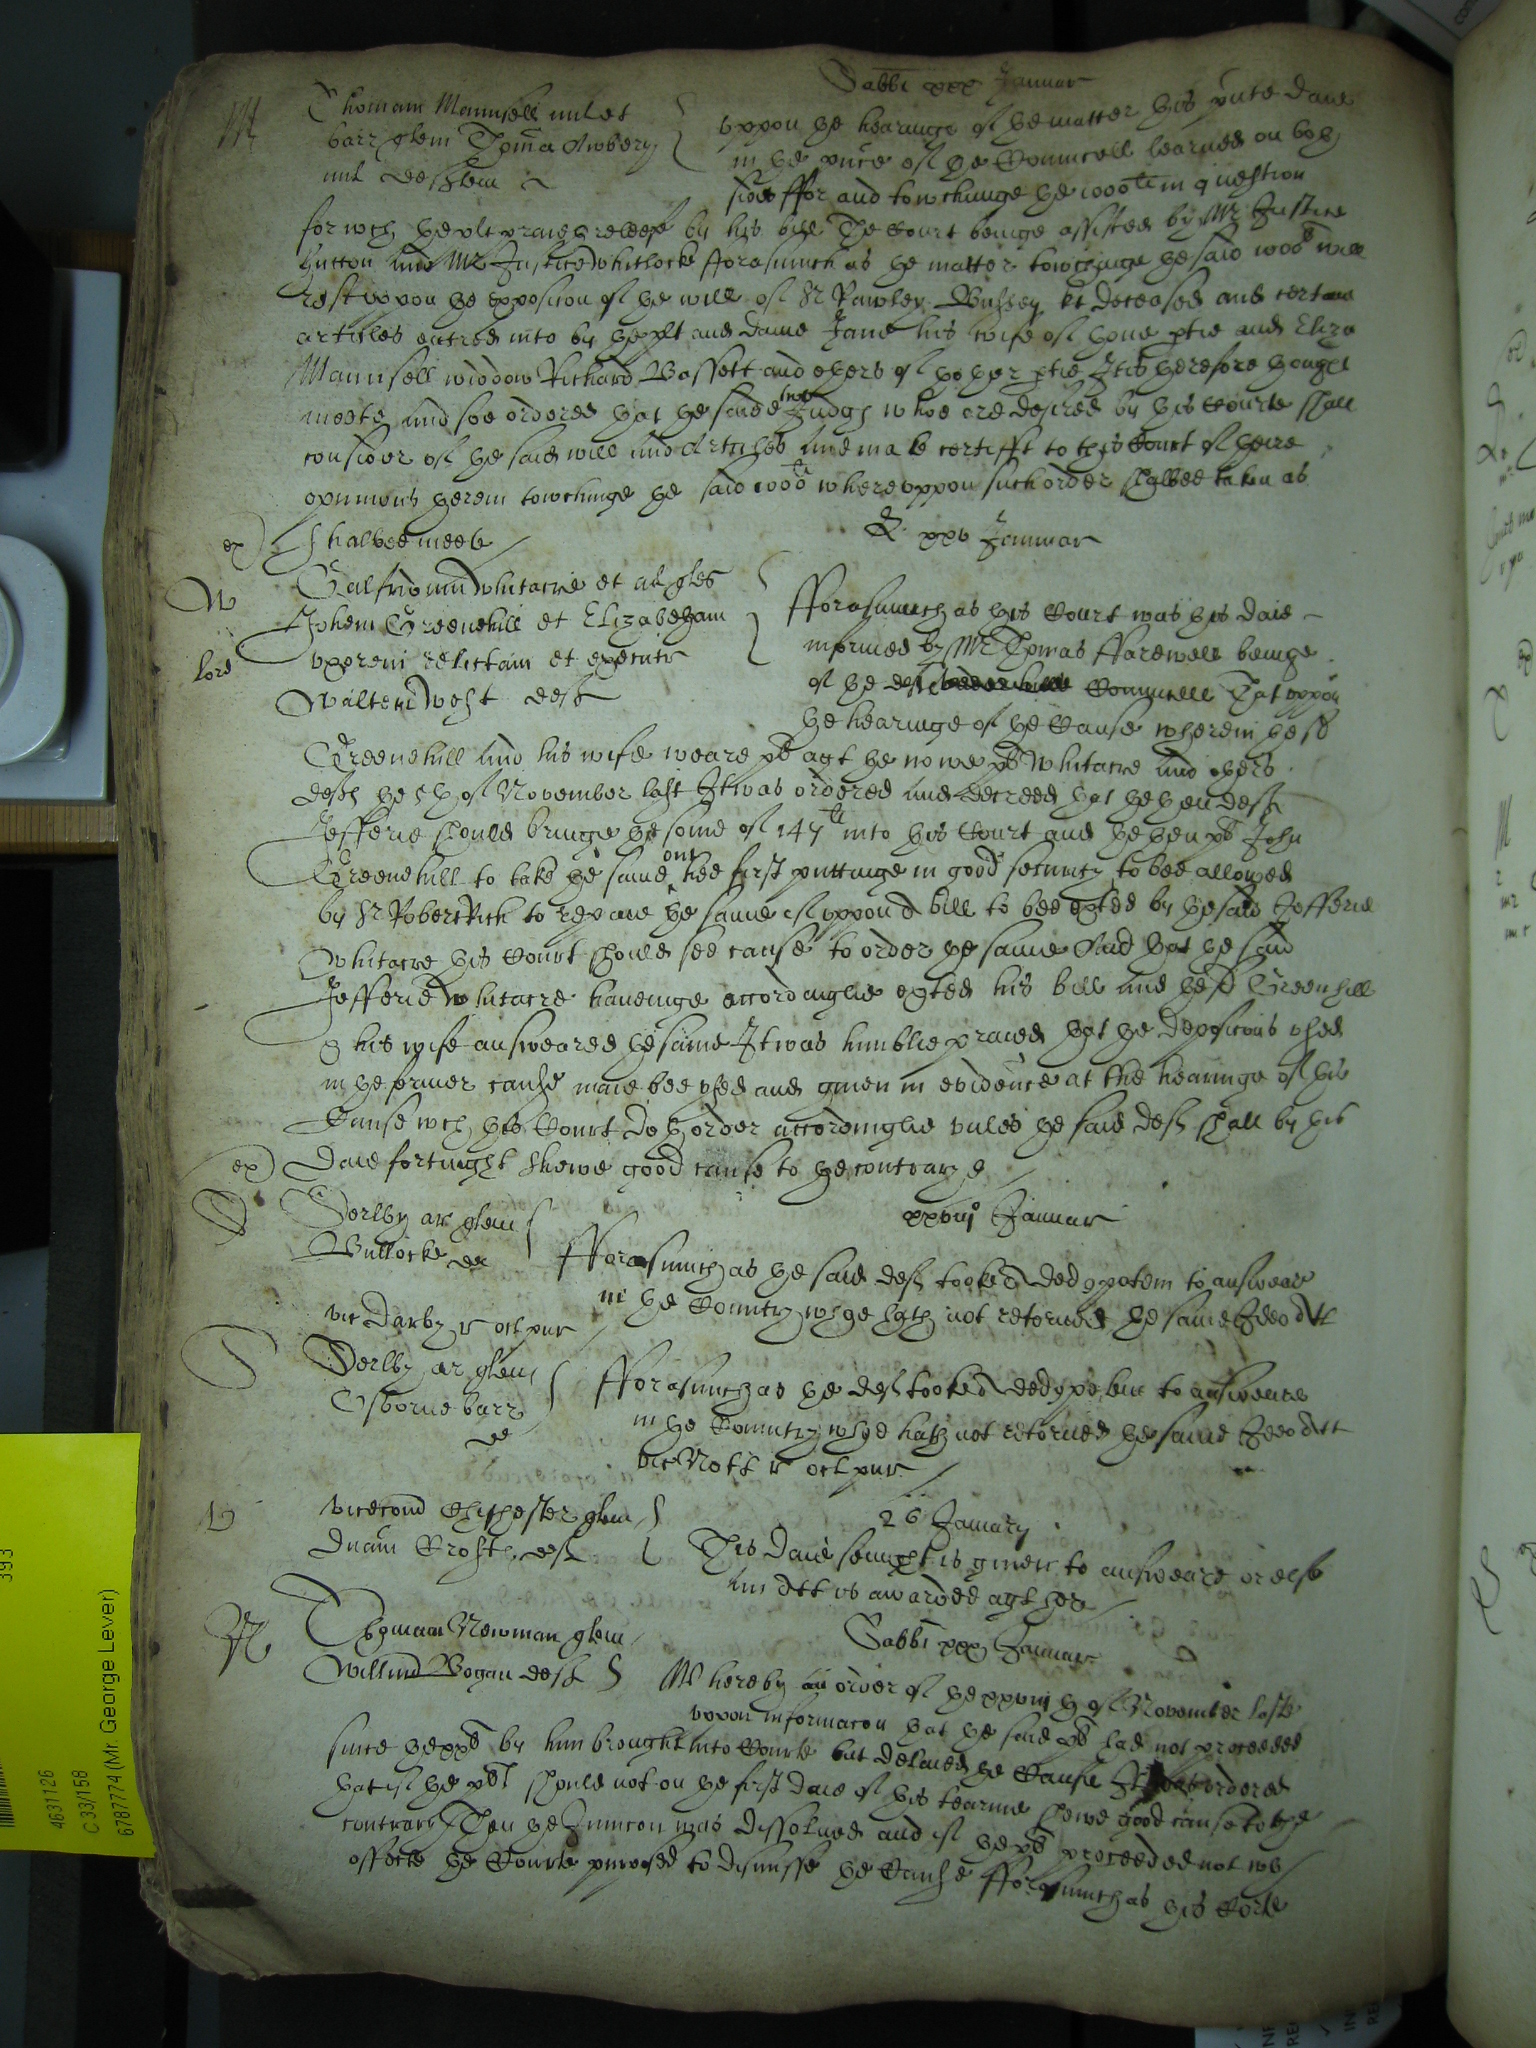 Sabbi xxx Januar
M
Thomam Maunsell milet
barr quem Thoma Awbery
mil def
Uppon the hearinge of the matter this pnte daie
in the pnce of the Councell learned on both
sides ffor and towchinge the 1000li in question
for wch the plt praieth releef by his bill The Court beinge assisted by Mr Justice
Hutton and Mr Justice Whitlocke fforasmuch as the matter towchinge the said 1000li will
rest uppon the exposicon of the will of Sr Rawley Bussey kt deceased and certaine
articles entred into by the plt and dame Jane his wife of thone ptie and Eliza
Maunsell widdow Richard Bassett and others of thother ptie It is therefore thought
meete and soe ordered that the saide two Judges whoe are desired by this Courte shall
consider of the said will and Articles and make certifft to this Court of theire
opinnions therein towchinge the said 1000li whereuppon such order shalbee taken as
shalbee meete
ex
R xxv Januar
W
lord
Galfridum Whitacre et al quer
Johem Greenehill et Elizabetham
uxorem relictam et executr
Walteri West def
fforasmuch as this Court was this daie
informed by Mr Thomas ffarewell beinge
of the def Councell That uppon
the hearinge of the Cause wherein the sd
Greenehill and his wife weare plts agt the nowe plts Whitacre and others
defts the 5th of November last It was ordered and decreed that the then deft
Jefferie should bringe the some of 147li into this Court and the then plt John
Greenehill to take the same out hee first puttinge in good security to bee allowed
by Sr Robert Rich to repaie the same if uppon a bill to bee exhted by the said Jefferie
Whitacre this Court should see cause to order the same And that the said
Jefferie Whitacre haveinge accordinglie exhted his bill and the sd Greenehill
& his wife answeared the same It was humblie praied that the deposicons used
in the former cause maie bee used and given in evidence at the hearinge of this
Cause wch this Court doth order accordinglie unles the said deft shall by this
daie fortnight shewe good cause to the contrary
ex
D
xxviijo Januar
Derby ar quer
Bullocke def
fforasmuch as the said deft tooke a ded potem to answeare
in the Country wch he hath not retorned the same Ideo Att
vic Darby r oct pur
D
Derby ar quer
Osborne barr
def
fforasmuch as the deft tooke a ded potem to answeare
in the Country wch he hath not retorned the same Ideo Att
vic Nott r oct pur
V
26 January
Vicecom Chichester quer
Dnam Crofts def
This daie sennight is given to answeare or else
an Att is awarded agt her
N
Sabbi xxx Januar
Thomam Newman quer
Willm Bogan def
Whereby an order of the xxviijth of November laste
uppon informacon that the said plt had not proceeded
since the by him brought into Courte but delaied the Cause It was ordered
that if the plt should not on the first daie of this tearme shewe good cause to the
contrary Then the Iniuncon was dissolved and if the plt proceeded not wth
effecte the Courte purposed to dismisse the Cause fforasmuch as this Corte
393
4631126
C 33/158
6787774 (Mr. George Lever)